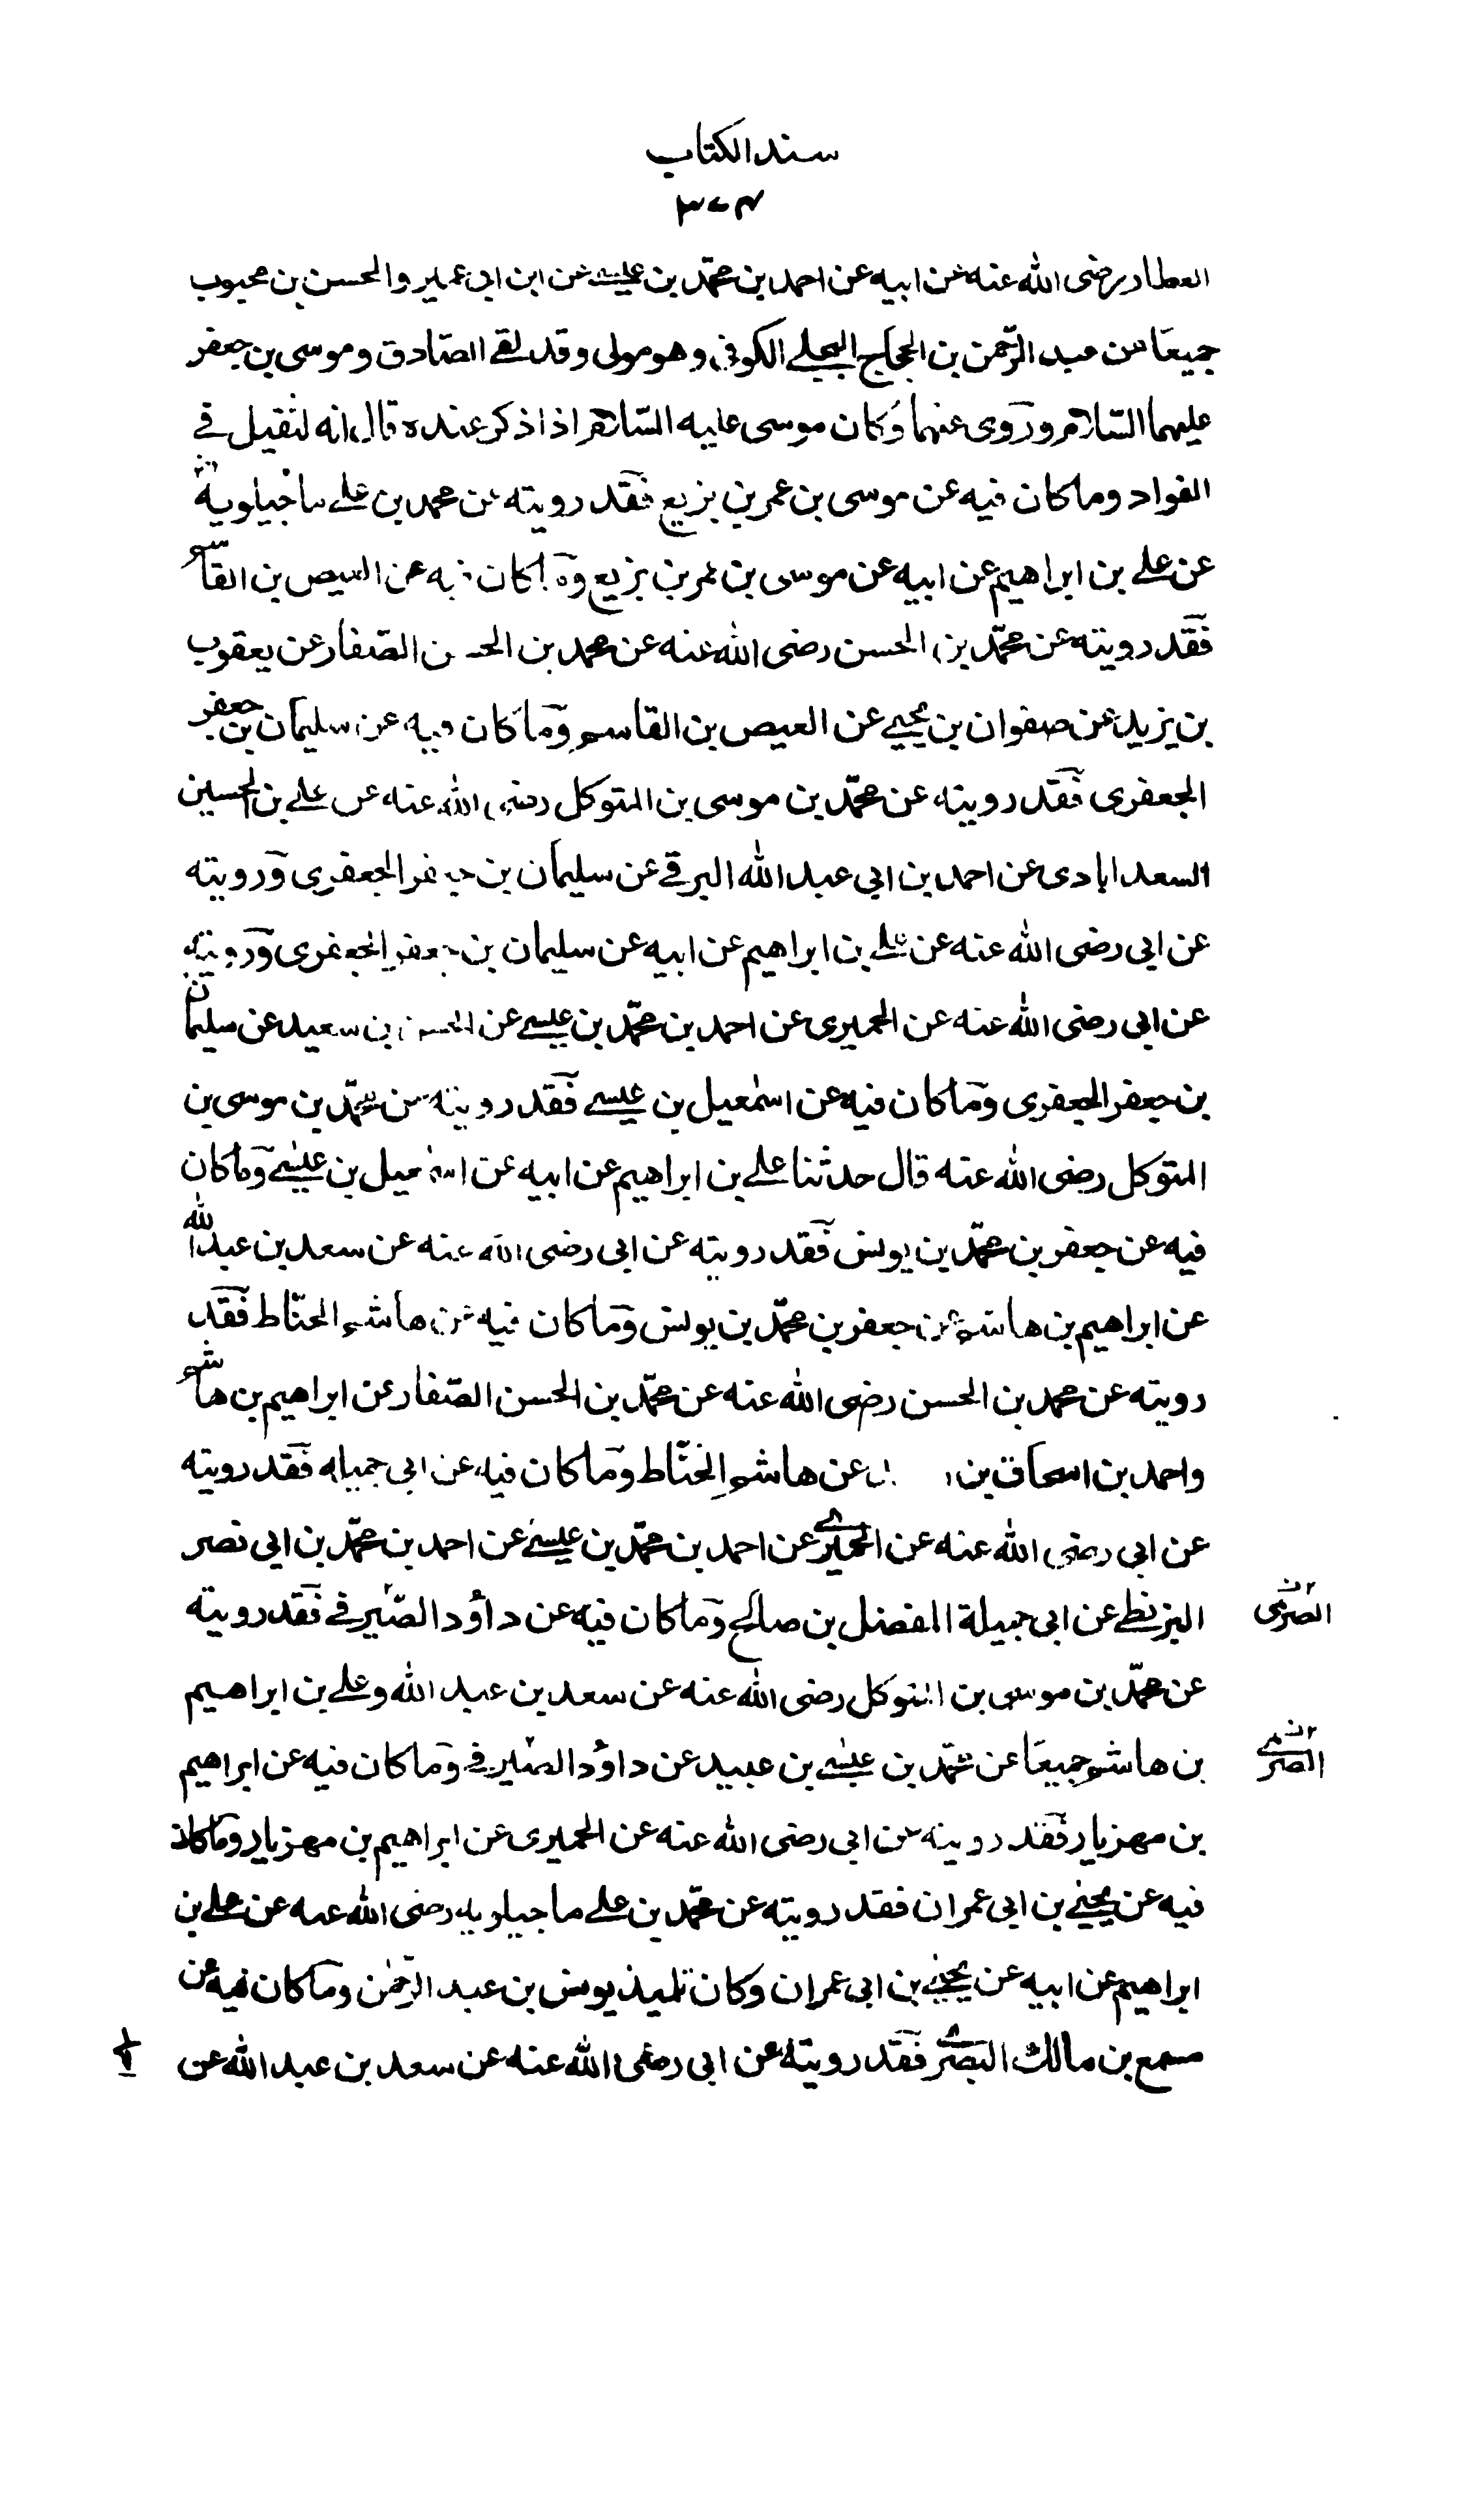 سند الكتاب
٣٧٤
العطار رضى الله عنه عن ابيه عن احمد بن محمّد بن عيسے عن ابن ابى عمير والحسن بن محبوب
جميعًا عن عبد الرّحمن بن الحجاج البجلے الكوفى وهو مولى وقد لقے الصّادق وموسى بن جعفر
عليهما السّلام وروى عنهما وكان موسى عليه السّلام اذا ذكر عنده قال انه لثقيل فے
الفواد وما كان فيه عن موسى بن عمر بن بزيع فقد رويته عن محمد بن علے ماجيلويه رض
عن علے بن ابراهيم عن ابيه عن موسى بن عمر بن بزيع وما كان فيه عن العيص بن القاسم
فقد رويته عن محمّد بن الحسن رضى الله عنه عن محمد بن الحسن الصّفار عن يعقوب
بن يزيد عن صفوان بن يحيے عن العيص بن القاسم وما كان فيه عن سليمان بن جعفر
الجعفرى فقد رويته عن محمّد بن موسى بن المتوكل رضى الله عنه عن علے بن الحسين
السعد ابادى عن احمد بن ابى عبد الله البرقے عن سليمان بن جعفر الجعفرى ورويته
عن ابى رضى الله عنه عن علے بن ابراهيم عن ابيه عن سليمان بن جعفر الجعفرى ورويته
عن ابى رضى الله عنه عن الحميرى عن احمد بن محمّد بن عيسے عن الحسين بن سعيد عن سليمان
بن جعفر الجعفرى وما كان فيه عن اسمٰعيل بن عيسے فقد رويته عن محمّد بن موسى بن
المتوكل رضى الله عنه قال حدثنا علے بن ابراهيم عن ابيه عن اسمٰعيل بن عيسے وما كان
فيه عن جعفر بن محمّد بن يونس فقد رويته عن ابى رضى الله عنه عن سعد بن عبد الله
عن ابراهيم بن هاشم عن جعفر بن محمّد بن يونس وما كان فيه عن هاشم الحنّاط فقد
رويته عن محمد بن الحسن رضى الله عنه عن محمّد بن الحسن الصّفار عن ابراهيم بن هاشم
واحمد بن اسحاق بن عن هاشم الحنّاط وما كان فيه عن ابى جميله فقد رويته
عن ابى رضى الله عنه عن الحميرے عن احمد بن محمّد بن عيسے عن احمد بن محمّد بن ابى نصر
البزنطے عن ابى جميلة المفضل بن صالح وما كان فيه عن داؤد الصّيرفے فقد رويته
الصرمى
عن محمّد بن موسى بن المتوكل رضى الله عنه عن سعد بن عبد الله وعلے بن ابراهيم
بن هاشم جميعًا عن محمّد بن عيسے بن عبيد عن داؤد الصّيرفے وما كان فيه عن ابراهيم
الصرمے
بن مهزيار فقد رويته عن ابى رضى الله عنه عن الحميرى عن ابراهيم بن مهزيار وما كان
فيه عن يحيے بن ابى عمران فقد رويته عن محمّد بن علے ماجيلويه رضى الله عنه عن علے بن
ابراهيم عن ابيه عن يحيے بن ابى عمران وكان تلميذ يونس بن عبد الرّحمٰن وما كان فيه عن
مسمع بن مالك البصرے فقد رويته عن ابى رضى الله عنه عن سعد بن عبد الله عن